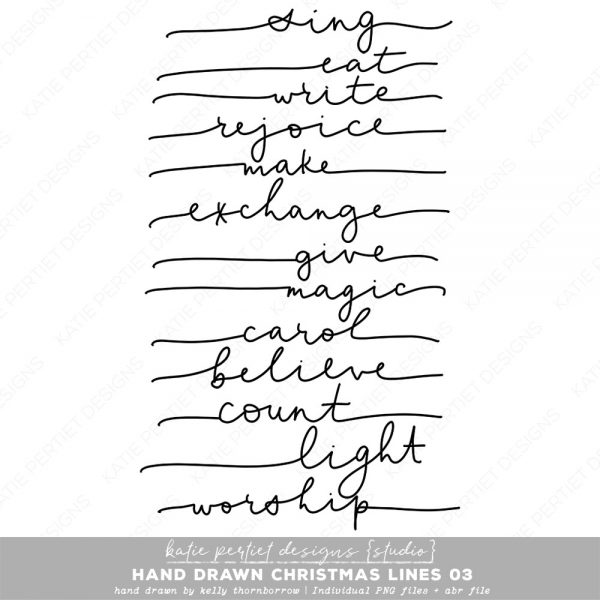 sing
eat
write
rejoice
make
exchange
give
magic
carol
believe
count
light
worship
katie pertiet designs {studio}
HAND DRAWN CHRISTMAS LINES 03
hand drawn by kelly thornborrow | Individual PNG files + abr file